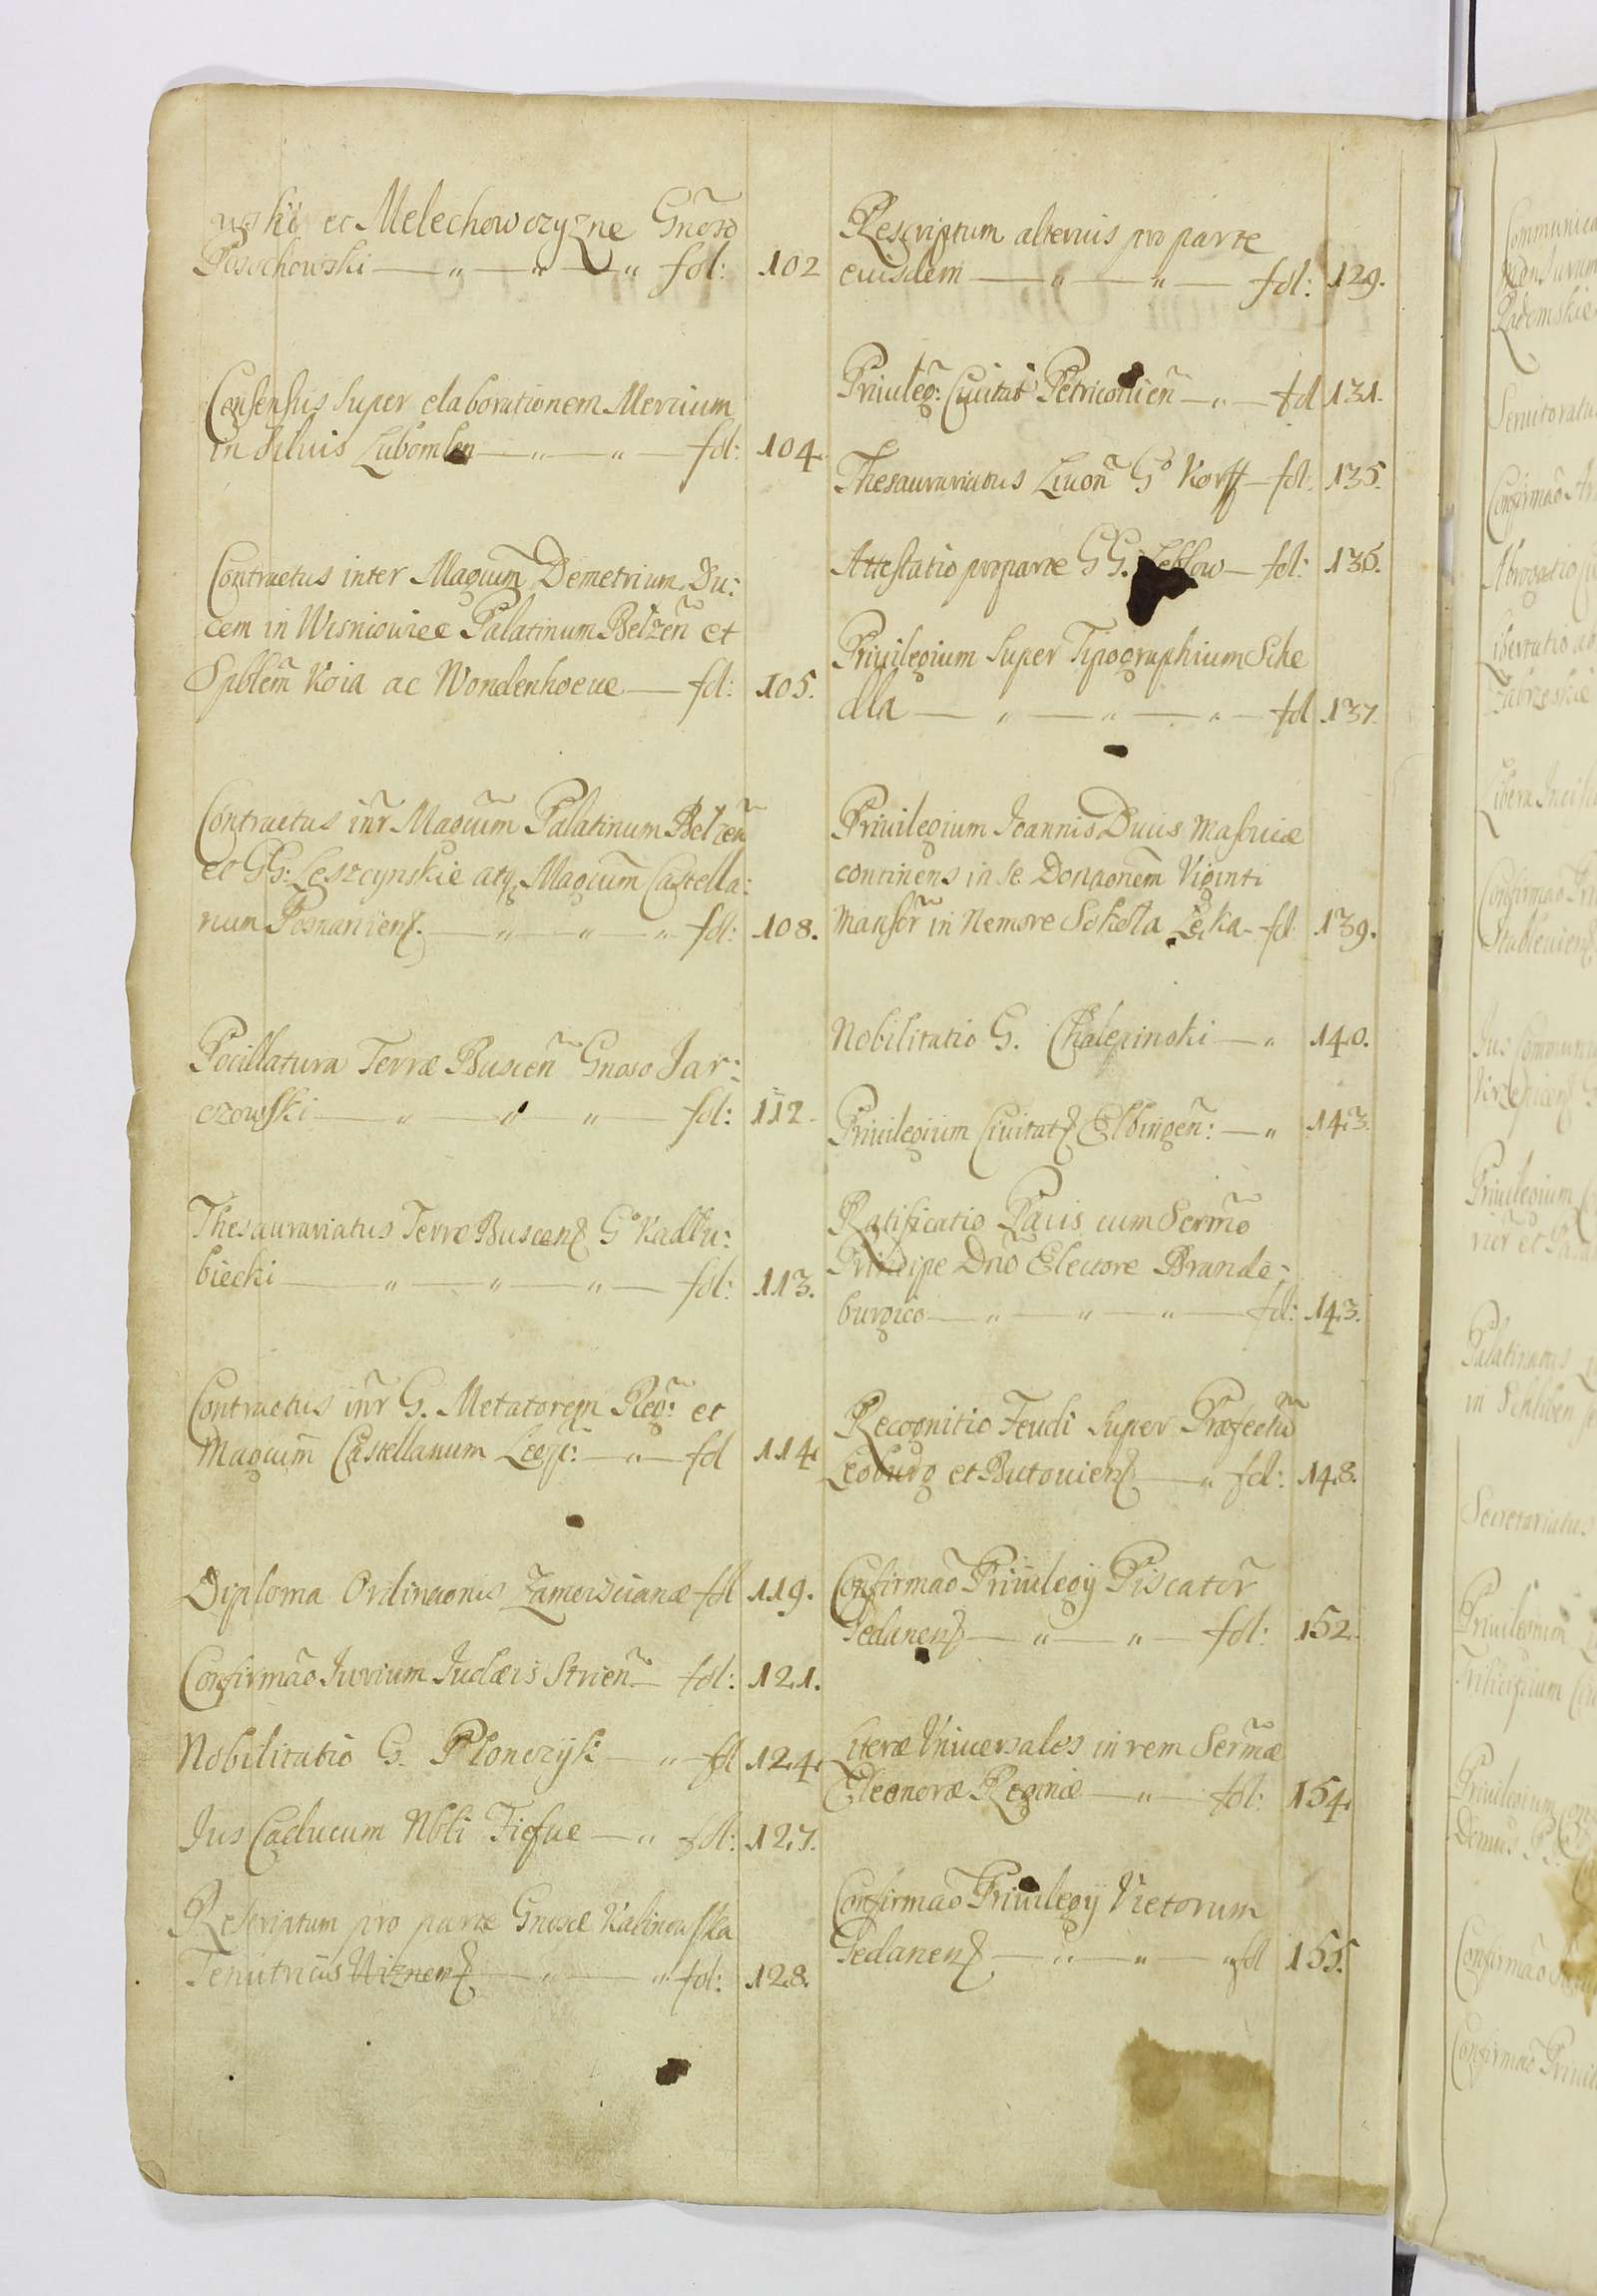 wski et Melechowczyzne Gnõso
Posochowski — „ — „ — „ fol: 102
Consensus super elaborationem Merzium
in Siluis Lubomlen — „ — „ — fol: 104.
Contractus inter Magcum̃ Demetrium Du:
cem in Wisniowiec Palatinum Belzeñ et
Spblem̃ Koia ac Wondenhoeue — fol: 105.
Contractus inr̃ Magcum̃ Palatinum Belzeñ
et GG: Leszcynskie atq Magcum̃ Castella:
num Posnanien. — „ — „ — „ fol: 108.
Pocillatura Terræ Busceñ Gnoso Jar:
czowski — „ — „ — „ — fol: 112.
Thesaurariatus Terræ Buscen Gº Kadłu:
biecki — „ — „ — „ — fol: 113.
Contractus inr̃ G. Metatorem Reg: et
Magcum̃ Castellanum — „ — fol 114.
Diploma Ordinaonis Zamoiscianæ fol 119.
Confirmão Iurium Iudæis Strieñ — fol: 121.
Nobilitatio G. Plonczyk — „ — fol 124.
Ius Caducum Nbli Tiefue — „ fol: 127.
Rescriptum pro parte Gnosæ Kalinowska
Tenutricis Wiznen — „ — „ fol: 128.
Rescriptum alterius pro parte
eiusdem — „ — „ — fol: 129.
Priuileg: Ciuitat Petricouieñ — „ — fol 131.
Thesaurariatus Liuoñ Gº Korff — fol: 135.
Attestatio pro parte GG. — fol: 136.
Priuilegium super Tipographium Sche
dla — „ — „ — „ — fol 137.
Priuilegium Ioannis Ducis Masouiæ
continens in se Donaonem̃ Viginti
Mansor̃ in Nemore Sokoła Łęka – fol 139.
Nobilitatio G. Chalepinski — „ 140.
Priuilegium Ciuitat Elbingeñ: — „ 143.
Ratificatio Pacis cum Sermõ
Principe Dnõ Electore Brande:
burgico — „ — „ — „ — fol: 143.
Recognitio Feudi super Præfectũ
Leoburg et Butouien — „ fol: 148.
Confirmaõ Priuilegy Piscator̃
Gedanen — „ — „ — fol: 152.
Literæ Vniuersales in rem Serm̃æ
Eleonoræ Reginæ — „ — fol: 154.
Confirmaõ Priuilegÿ Vietorum
Gedanen — „ — „ — „ fol 155.